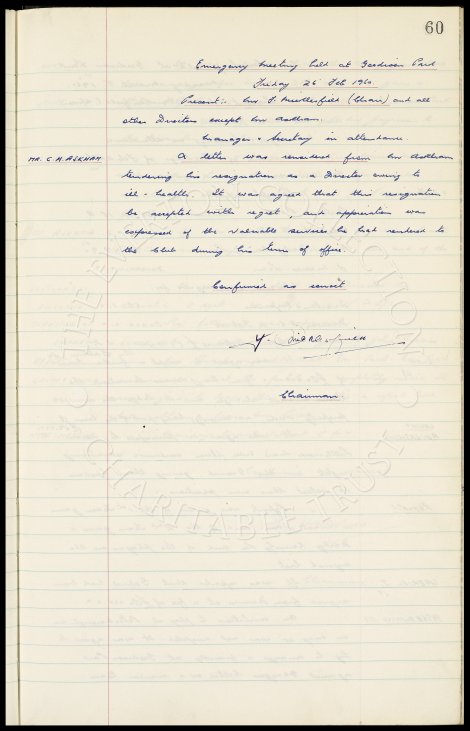 60
Emergency Meeting held at Goodison Park
Friday 26 Feb 1960.
Present:- Mr F. Micklesfield (Chair) and all
other Directors except Mr Askham.
Manager & Secretary in attendance.
MR. C. H. ASKHAM A letter was received from Mr Askham
tendering his resignation as a Director owing to
ill-health. It was agreed that this resignation
be accepted with regret, and appreciation was
expressed of the valuable services he had rendered to
the Club during his term of office.
Confirmed as correct
Chairman.
THE EVERTON COLLECTION
CHARITABLE TRUST